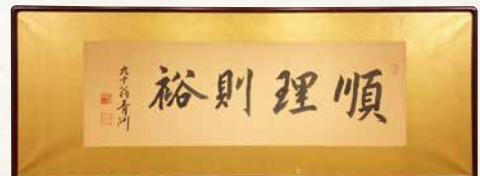 順理則裕
九十翁青淵